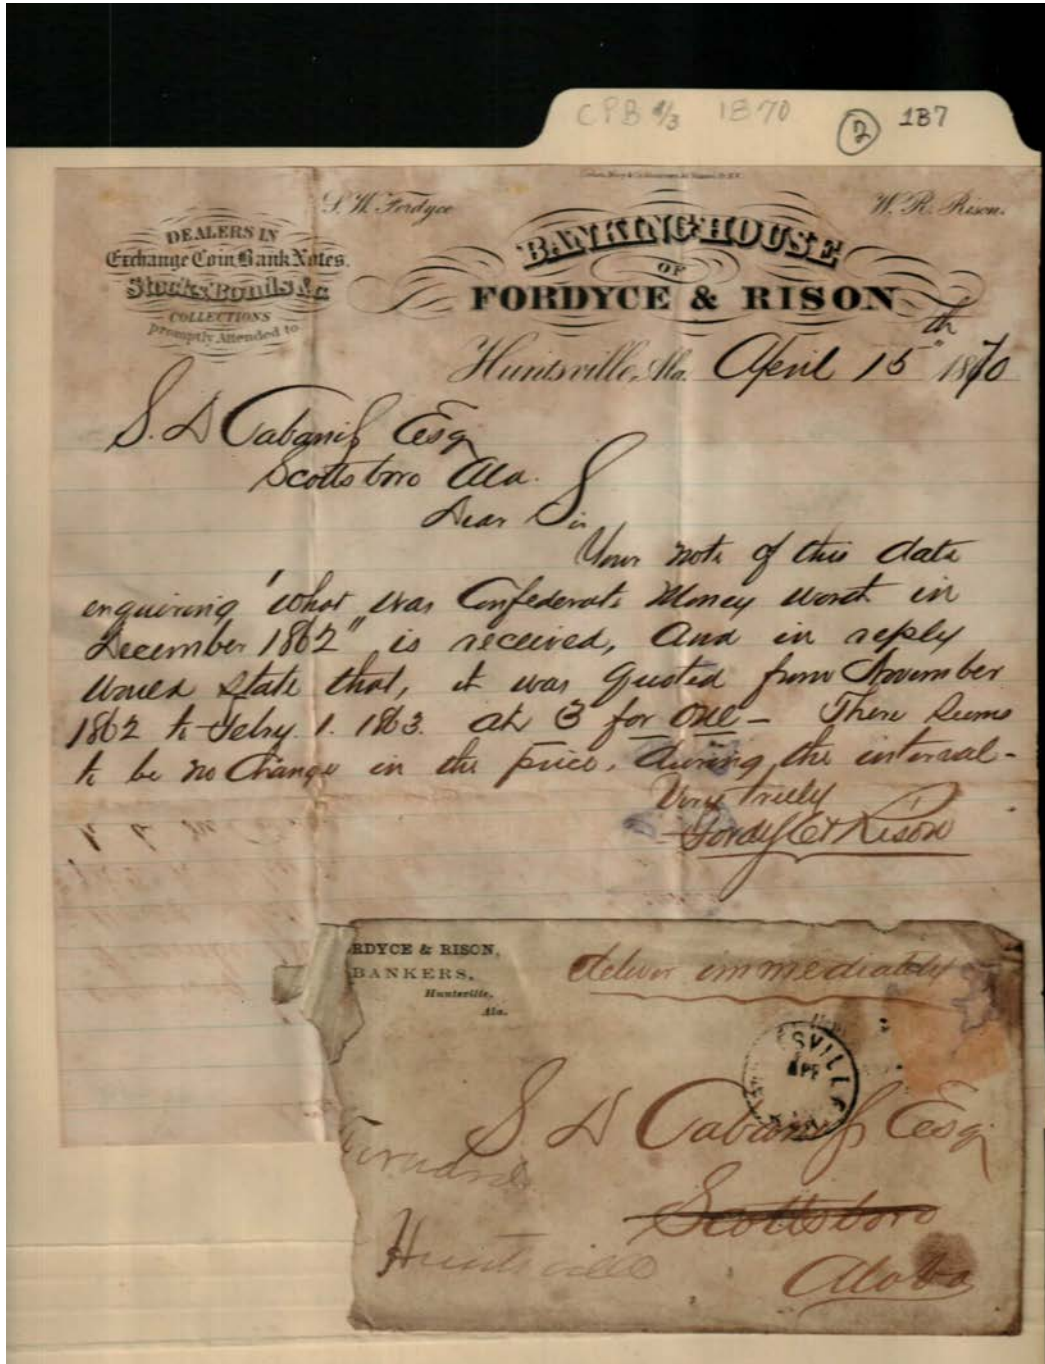 CPB 4/3 1870 2 1B7
S. W. Fordyce W. R. Rison.
DEALERS IN
Exchange Coin Bank Notes.
Stocks Bonds &c
COLLECTIONS
promptly Attended to
BANKING HOUSE
OF
FORDYCE & RISON
Huntsville, Ala. April 15th 1870
S. D Cabaniss Esq
Scottsboro Ala.
Dear Sir
Your note of this date
enquiring 'what was Confederate Money worth in
December 1862" is received, and in reply
would state that, it was quoted from November
1862 to Feby. 1. 1863. at 3 for one - There seems
to be no Change in the price, during the interval-
Very truly
Fordyce & Rison
RDYCE & RISON,
BANKERS,
Huntsville,
Ala.
deliver immediately
SVILLE
APR
S D Cabaniss Esq
Forward
Scottsboro
Huntsville
Alaba